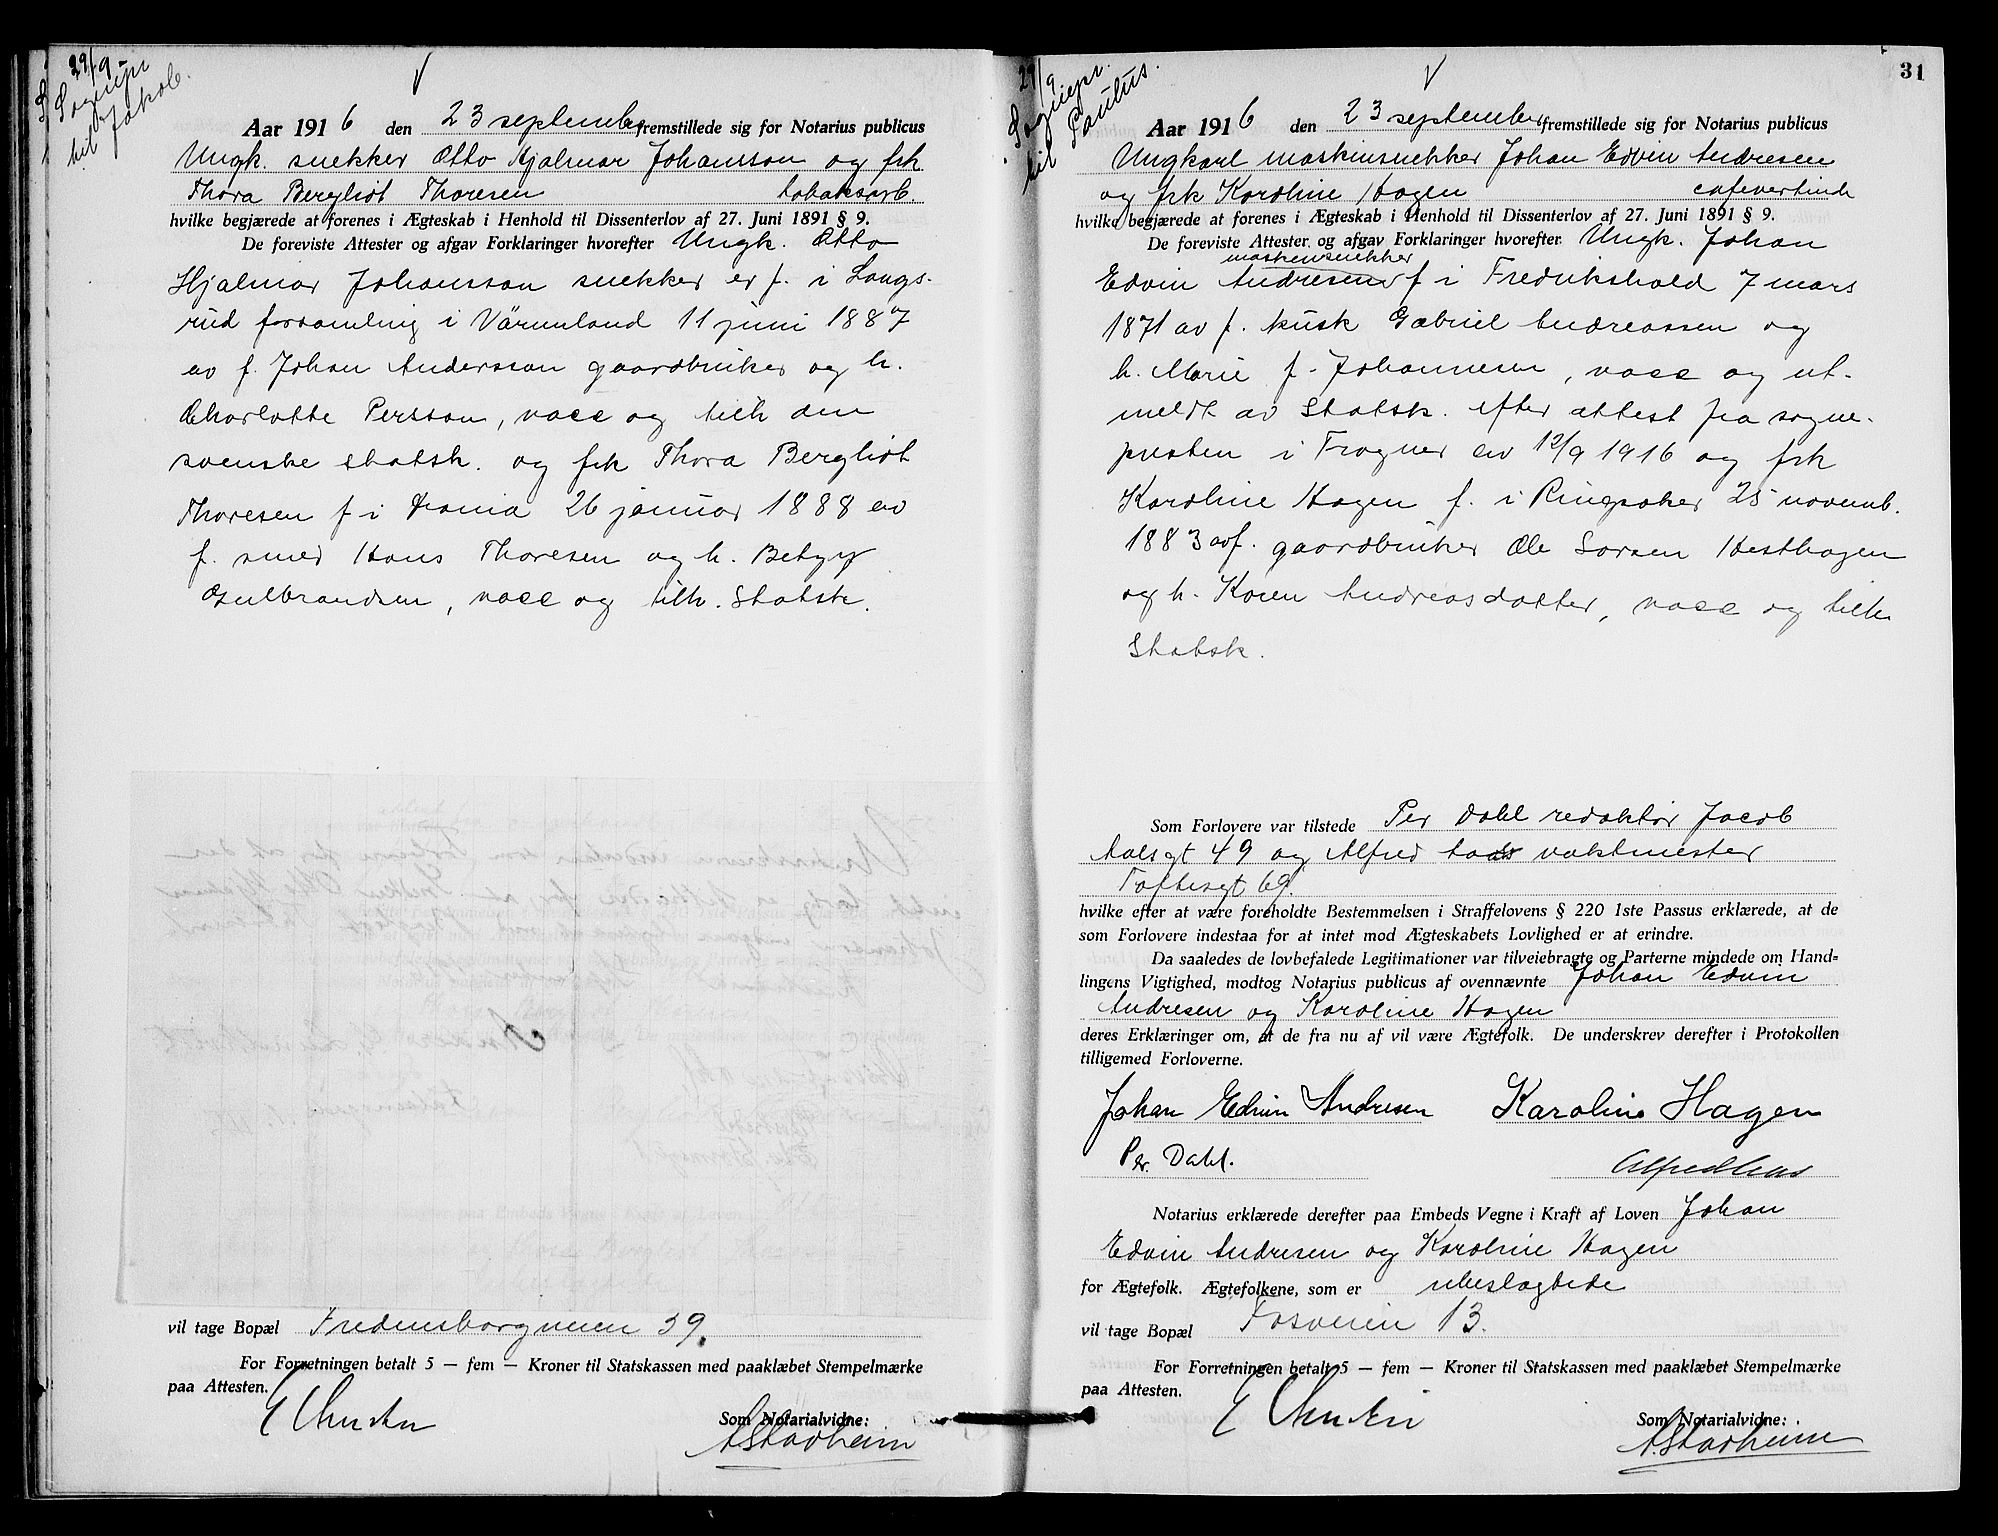 29/9
Sognepr.
til Jakob.
Aar 1916 den 23 september fremstillede sig for Notarius publicus
Ungk. snekker Otto Hjalmar Johansson og frk
Thora Bergliot Thoresen tobaksarb.
hvilke begjærede at forenes i Ægteskab i Henhold til Dissenterlov af 27. Juni 1891 § 9.
De foreviste Attester og afgav Forklaringer hvorefter Ungk. Otto
Hjalmar Johansson snekker er f. i Langs-
rud forsamling i Värmland 11 juni 1887
av f. Johan Andersson gaardbruker og h.
Charlotte Persson, vacc og tilh den
svenske statsk. og frk Thora Bergliot
Thoresen f i Krania 26 januar 1888 av
f. smed Hans Thoresen og h. Betzy
Gulbrandsen, vacc og tilh. Statsk.
vil tage Bopæl Fredensborgveien 39.
For Forretningen betalt 5 — fem — Kroner til Statskassen med paaklæbet Stempelmærke
paa Attesten.
Som Notarialvidne:
AStadheim
31
29/9
Sognepr.
til Paulus.
Aar 1916 den 23 september fremstillede sig for Notarius publicus
Ungkarl maskinsnekker Johan Edvin Andresen
og frk Karoline Hagen cafevertinde
hvilke begjærede at forenes i Ægteskab i Henhold til Dissenterlov af 27. Juni 1891 § 9.
De foreviste Attester og afgav Forklaringer hvorefter Ungk. Johan
maskinsnekker
Edvin Andresen f i Fredrikshald 7 mars
1871 av f. kusk Gabriel Andreassen og
h. Marie f. Johannesen, vacc og ut-
meldt av Statsk. efter attest fra sogne-
presten i Frogner av 12/9 1916 og frk
Karoline Hagen f. i Ringsaker 25 novemb.
1883 av f. gaardbruker Ole Larsen Hesthagen
og h. Karen Andreasdatter, vacc og tilh
Statsk.
Som Forlovere var tilstede Per Dahl redaktør Jacob
Aalsgt 49 og Alfred vaktmester
Toftesgt 69.
hvilke efter at være foreholdte Bestemmelsen i Straffelovens § 220 1ste Passus erklærede, at de
som Forlovere indestaa for at intet mod Ægteskabets Lovlighed er at erindre.
Da saaledes de lovbefalede Legitimationer var tilveiebragte og Parterne mindede om Hand=
lingens Vigtighed, modtog Notarius publicus af ovennævnte Johan Edvin
Andresen og Karoline Hagen
deres Erklæringer om, at de fra nu af vil være Ægtefolk. De underskrev derefter i Protokollen
tilligemed Forloverne.
Johan Edvin Andresen Karoline Hagen
Per. Dahl. Alfred
Notarius erklærede derefter paa Embeds Vegne i Kraft af Loven Johan
Edvin Andresen og Karoline Hagen
for Ægtefolk. Ægtefolkene, som er ubeslagtede
vil tage Bopæl Fosveien 13.
For Forretningen betalt 5 — fem — Kroner til Statskassen med paaklæbet Stempelmærke
paa Attesten.
Som Notarialvidne:
AStadheim